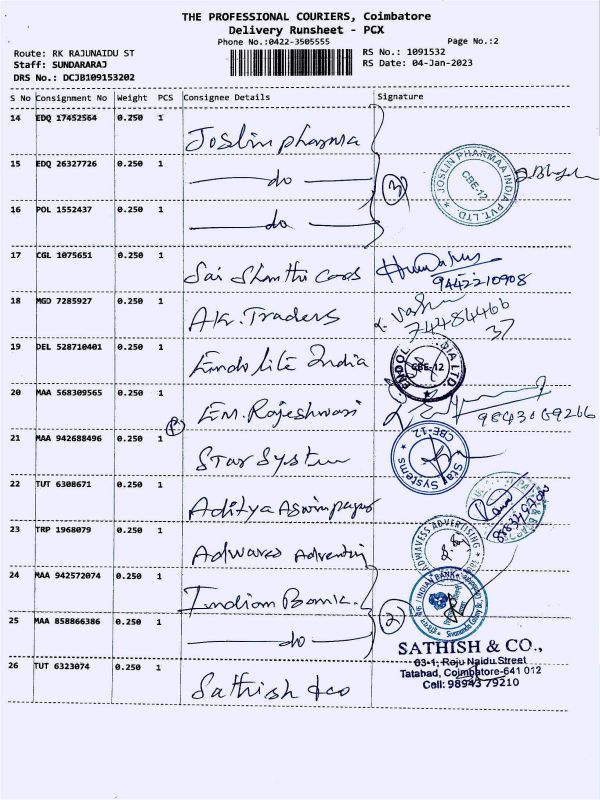 THE PROFESSIONAL COURIERS, Coimbatore
Delivery Runsheet - PCX
Phone No.:0422-3505555 Page No.:2
Route: RK RAJUNAIDU ST RS No.: 1091532
Staff: SUNDARARAJ RS Date: 04-Jan-2023
DRS No.: DCJB109153202
S No Consignment No Weight PCS Consignee Details Signature
14 EDQ 17452564 0.250 1 Joslin pharma
15 EDQ 26327726 0.250 1 do 3
JOSLIN PHARMAA INDIA PVT. LTD. CBE-12
16 POL 1552437 0.250 1 do
17 CGL 1075651 0.250 1 Sai Shanthi
9442210908
18 MGD 7285927 0.250 1 AK. Traders
74484466
37
19 DEL 528710401 0.250 1 Endo lite India
CBE-12
20 MAA 568309565 0.250 1 EM. Rajeshwari
21 MAA 942688496 0.250 1 Star System
Star Systems CBE-12
22 TUT 6308671 0.250 1 Aditya
23 TRP 1968079 0.250 1
ADWAVESS ADVERTISING
24 MAA 942572074 0.250 1 Indian Bank.
INDIAN BANK
25 MAA 858866386 0.250 1 do 2
26 TUT 6323074 0.250 1 Sathish & co
SATHISH & CO.,
63-1, Raju Naidu Street
Tatabad, Coimbatore-641 012
Cell: 98943 79210